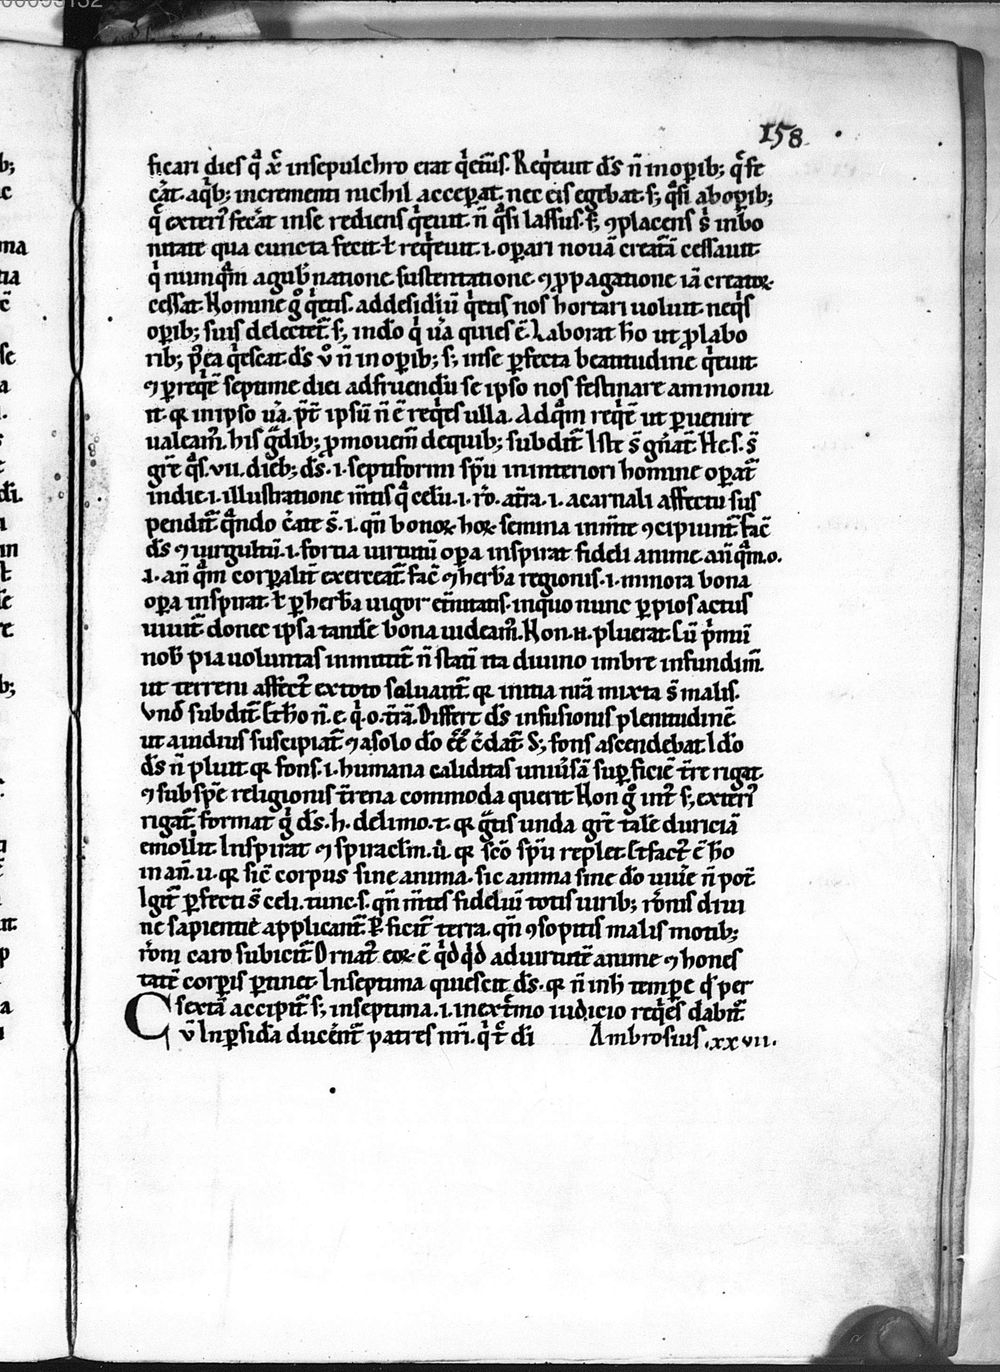 158
ficari dies q̃ xp̃c insepulchro erat q̇etur̃. Req̇euit dñs ñ inoꝑib; q̃si
eãt aq̇b; incrementi nichil acceꝑat. nec eis egebat. s; q̃si aboꝑib;
q̇ exteri fecãt inse rediens q̇euit. ñ q̃si lassus. s; ꝯplacens s̃ inbo
nitate qua cuncta fecit ł req̇euit .i. oꝑari nouã creat̃ã cessauit
q̇ numq̃m agub̃natione sustentatione ꝯ ꝓpagatione iã creatoꝝ
cessat. Homine g̊ q̇etis. addesidiũ q̇etis nos hortari uoluit neq̇s
oꝑib; suis delectet̃ s; indo q̇ ũa quies ẽ. Laborat hõ ut ꝓ labo
rib; p̃ea q̇escat dñs ů ñ inoꝑib; s; inse ꝑfecta beatitudine q̇euit
ꝯ ꝑ req̇ẽ septime diei adfruendũ se ipso nos festinare ammonu
it. qꝛ inipso ũa. p̃t ipsũ ñ ẽ req̇es ulla. Adq̃m req̇ẽ ut ꝑuenire
ualeam̃. his g̃dib; ꝓmouem̃ dequib; subdit̃ Iste s̃ gñat̃.
grẽ q̃s .vii. dieb; dñs .i. septiformi sp̃u ininteriori homine oꝑat̃
indie .i. illustratione m̃tis q̃ celũ .i. rõ. at̃ra .i. acarnali affectu sus
pendit̃ q̃ndo c̃ate s̃ .i. qñ bonoꝝ hoꝝ semina inm̃te ꝯcipiunt̃ fac̃
dñs ꝯ uirgultũ .i. fortia uirtutũ oꝑa inspirat fideli anime añ q̃m .o.
.i. añ q̃m corꝑalit̃ exerceat̃ fac̃ ꝯ herb̃a regionis .i. minora bona
oꝑa inspirat. ł ꝑ herb̃a uigor et̃nitatis. inquo nunc ꝑ pios actus
uiuit̃ donec ipsa tandẽ bona uideam̃. Non .n. pluerat cũ p̃mũ
nob̃ pia uoluntas inmittit̃ ñ statĩ ita diuino imbre infundim̃
ut terreni affect̃ extoto soluant̃ qꝛ initia nr̃a mixta s̃ malis.
Vnd̃ subdit̃ Et hõ ñ .e. q̇ .o. t̃ra. Differt dñs infusionis plenitudinẽ
ut auidius suscipiat̃ ꝯ asolo dõ ẽẽ c̃dat̃ S; fons ascendebat
dñs ñ pluit qꝛ fons .i. humana caliditas uniũsã suꝑficiẽ t̃re rigat
ꝯ sub spẽ religionis t̃rena commoda querit Non g̊ int̃ s; exteri
rigat̃. format g̊ dñs .h. delimo .t. qꝛ g̃tis unda grẽ talẽ duriciã
emolliit Inspirat ꝯ spiraclm̃ .u. qꝛ sc̃o sp̃u replet. Et fact̃ ẽ hõ
in añ .u. qꝛ sic̃ corpus sine anima. sic anima sine dõ uiue ñ pot̃.
Igit̃ ꝑfecti s̃ celi. tunc .s. qñ m̃tis fidelium totis uirib; r̃onis diui
ne sapientie applicant̃. ꝑficit̃ terra. qñ ꝯsopitis malis motib;
r̃oni caro subicit̃ Ornat̃ eoꝝ ẽ q̇dq̇d aduirtutẽ anime ꝯ hones
tatẽ corꝑis ꝑtinet. Inseptima quiescit dñs. qꝛ ñ inh̃ tempe qd̃ per
sextã accipit̃ s; inseptima .i. inext̃mo iudicio req̇es dabit̃
Cũ Inꝑsida ducẽnt̃ patres nr̃i. q̇ t̃c di Ambrosius .xxvii.